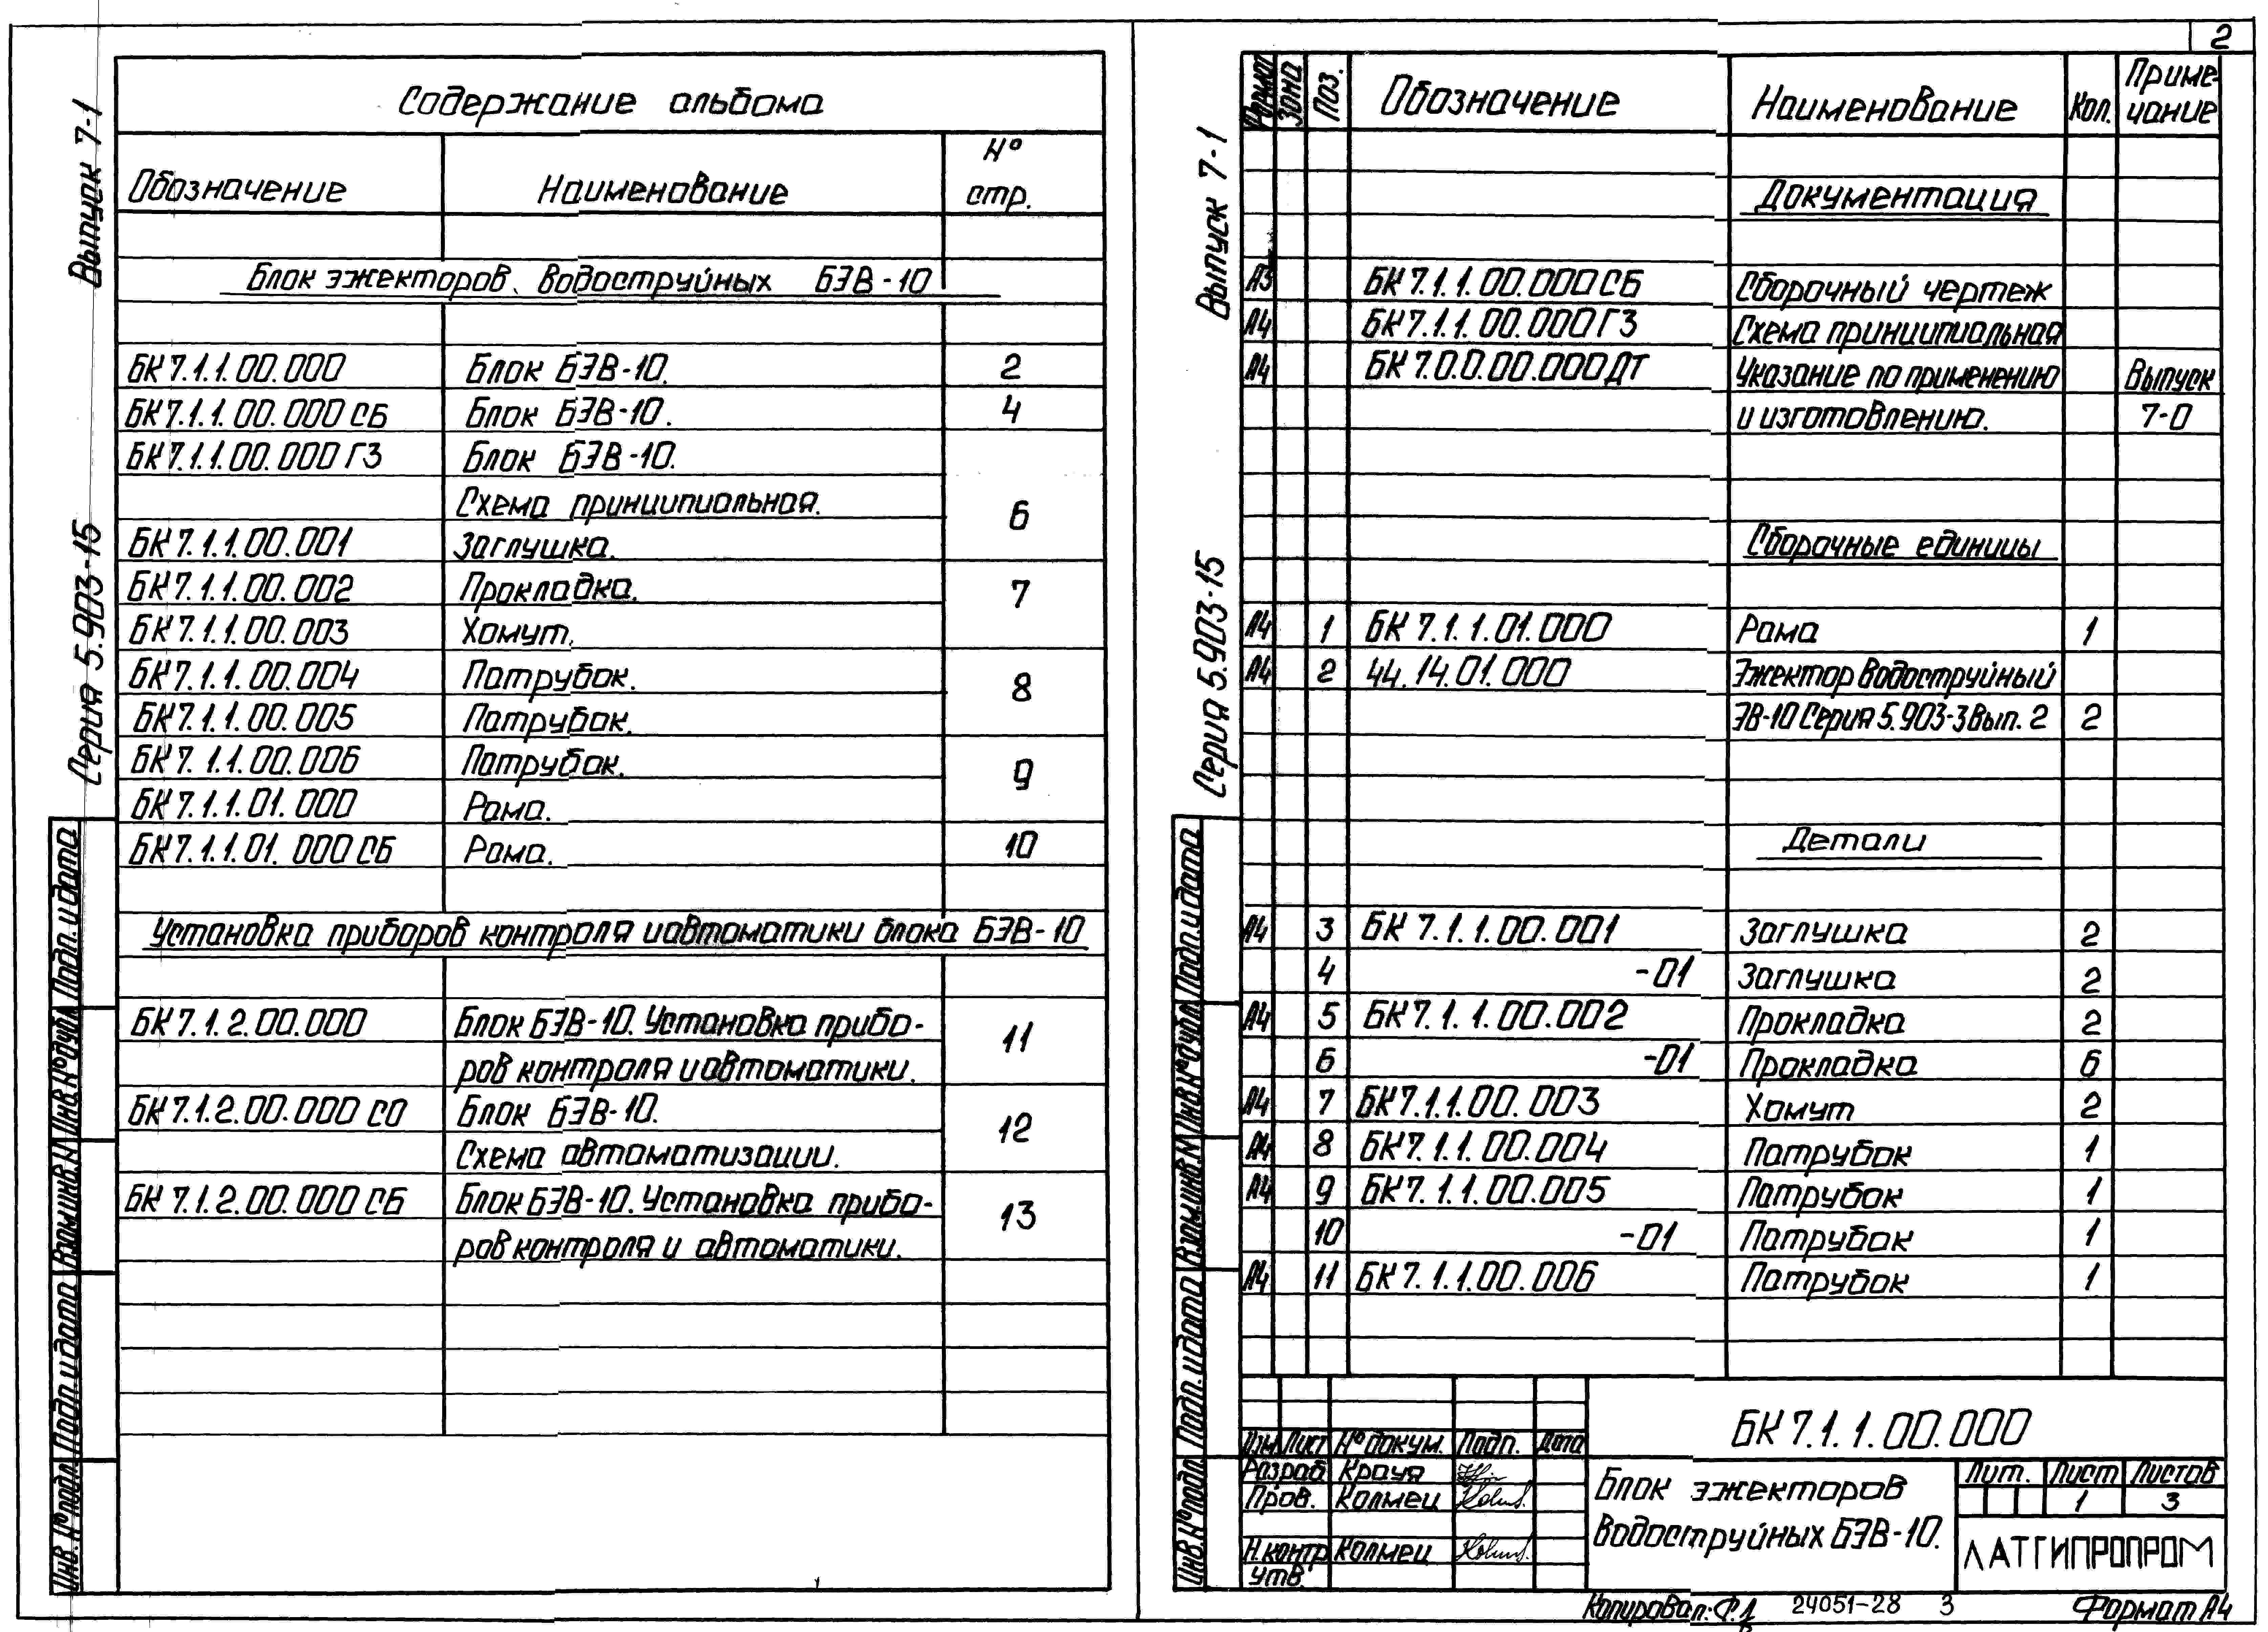 2
Выпуск 7-1
Серия 5.903-15
Содержание альбома
Обозначение Наименование № стр.
Блок эжекторов водоструйных БЭВ-10
БК 7.1.1.00.000 Блок БЭВ-10. 2
БК 7.1.1.00.000 СБ Блок БЭВ-10. 4
БК 7.1.1.00.000 ГЗ Блок БЭВ-10.
Схема принципиальная. 6
БК 7.1.1.00.001 Заглушка.
БК 7.1.1.00.002 Прокладка. 7
БК 7.1.1.00.003 Хомут.
БК 7.1.1.00.004 Патрубок. 8
БК 7.1.1.00.005 Патрубок.
БК 7.1.1.00.006 Патрубок. 9
БК 7.1.1.01.000 Рама.
БК 7.1.1.01.000 СБ Рама. 10
Установка приборов контроля и автоматики блока БЭВ-10
БК 7.1.2.00.000 Блок БЭВ-10. Установка прибо- 11
ров контроля и автоматики.
БК 7.1.2.00.000 СО Блок БЭВ-10. 12
Схема автоматизации.
БК 7.1.2.00.000 СБ Блок БЭВ-10. Установка прибо- 13
ров контроля и автоматики.
Инв.№ подл. Подп. и дата Взам.инв.№ Инв.№ дубл. Подп. и дата
Выпуск 7-1
Серия 5.903-15
Формат Зона Поз. Обозначение Наименование Кол. Приме-
чание
Документация
А3 БК 7.1.1.00.000 СБ Сборочный чертеж
А4 БК 7.1.1.00.000 ГЗ Схема принципиальная
А4 БК 7.0.0.00.000 ДТ Указание по применению Выпуск
и изготовлению. 7-0
Сборочные единицы
А4 1 БК 7.1.1.01.000 Рама 1
А4 2 44.14.01.000 Эжектор водоструйный
ЭВ-10 Серия 5.903-3 Вып. 2 2
Детали
А4 3 БК 7.1.1.00.001 Заглушка 2
4 -01 Заглушка 2
А4 5 БК 7.1.1.00.002 Прокладка 2
6 -01 Прокладка 6
А4 7 БК 7.1.1.00.003 Хомут 2
А4 8 БК 7.1.1.00.004 Патрубок 1
А4 9 БК 7.1.1.00.005 Патрубок 1
10 -01 Патрубок 1
А4 11 БК 7.1.1.00.006 Патрубок 1
Инв.№ подл. Подп. и дата Взам.инв.№ Инв.№ дубл. Подп. и дата
БК 7.1.1.00.000
Изм Лист № докум. Подп. Дата
Разраб Крауя
Пров. Колмец
Н.контр Колмец
Утв.
Блок эжекторов
водоструйных БЭВ-10.
Лит. Лист Листов
1 3
ЛАТГИПРОПРОМ
Копировал: 24051-28 3 Формат А4